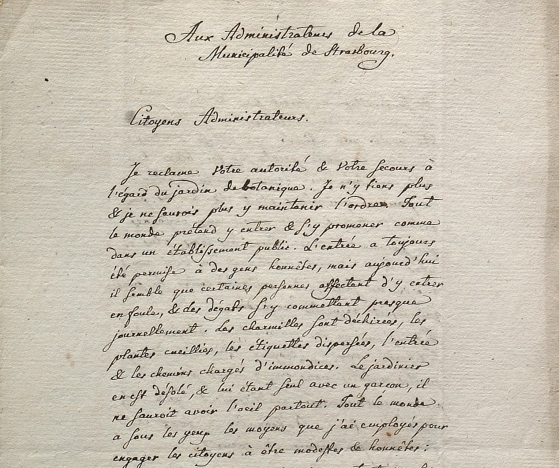 Aux Administrateurs de la
Municipalité de Strasbourg.
Citoyens Administrateurs.
Je reclame Votre autorité & Votre secours à
l'égard du jardin de botanique. Je n'y tiens plus
& je ne saurois plus y maintenir l'ordre. Tout
le monde prétend y entrer & s'y promener comme
dans un établissement public. L'entrée a toujours
été permise à des gens honnêtes, mais aujourd'hui
il semble que certaines personnes affectent d'y entrer
en foule, & des dégats s'y commettent presque
journellement. Les charmilles sont déchirées, les
plantes cueillies, les étiquettes dispersées, l'entrée
& les chemins chargés d'immondices. Le jardinier
en est désolé, & lui étant seul avec un garçon, il
ne sauroit avoir l'oeil partout. Tout le monde
a sous les yeux les moyens que j'ai employés pour
engager les citoyens à être modestes & honnêtes: